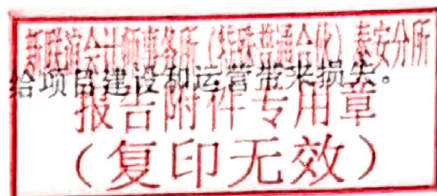 新联谊会计师事务所（特殊普通合伙）泰安分所
给项目建设和运营带来损失。
报告附件专用章
（复印无效）